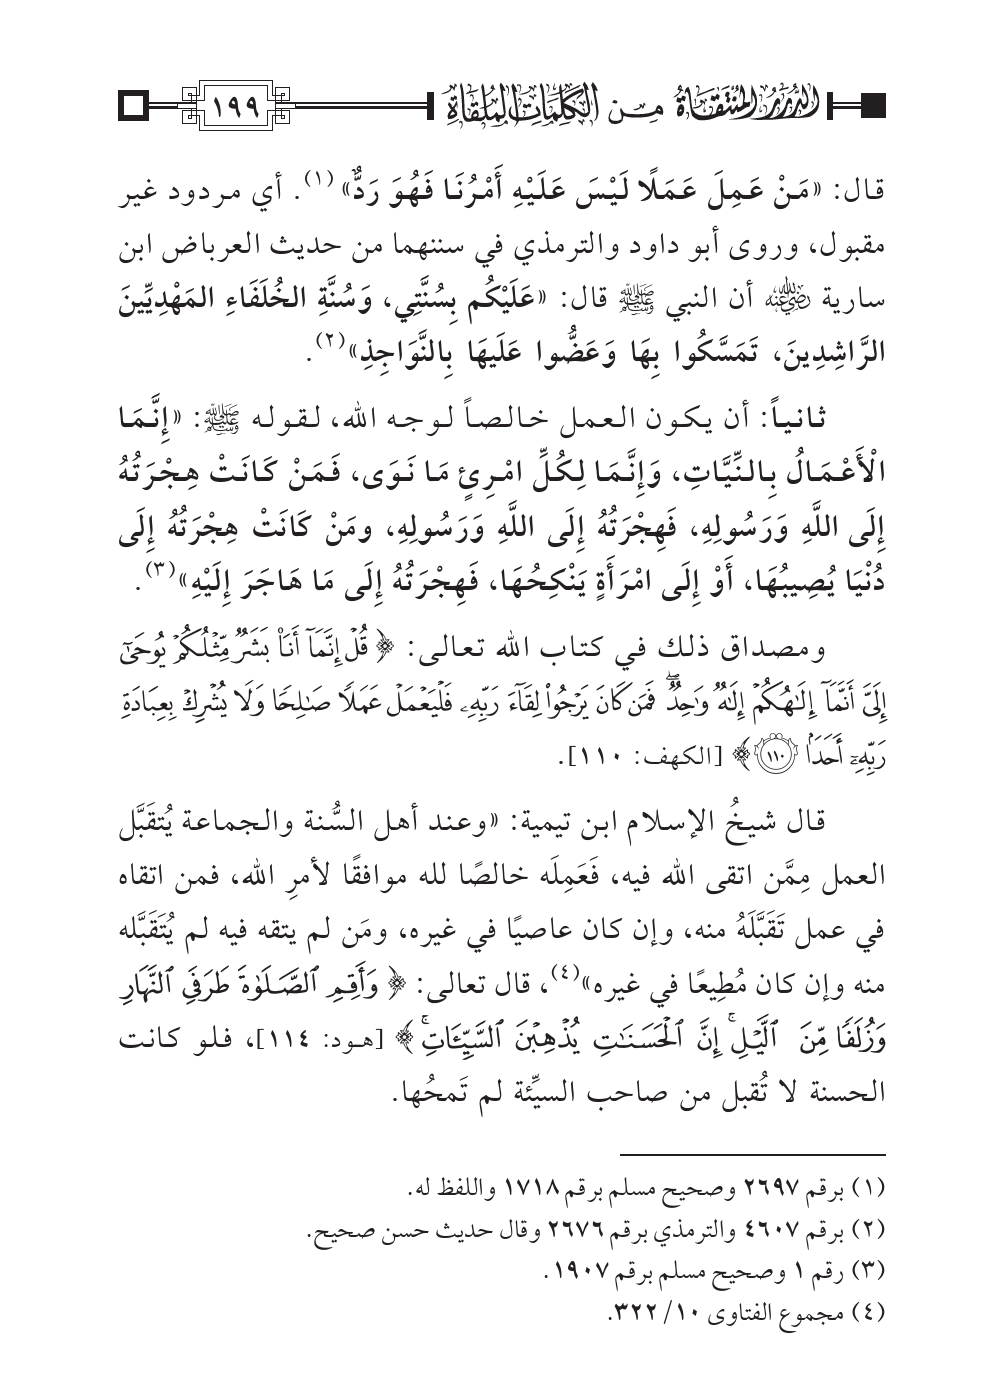 الدرر المنتقاة من الكلمات الملقاة ١٩٩
قال: «مَنْ عَمِلَ عَمَلًا لَيْسَ عَلَيْهِ أَمْرُنَا فَهُوَ رَدٌّ»(١). أي مردود غير
مقبول، وروى أبو داود والترمذي في سننهما من حديث العرباض ابن
سارية رضي الله عنه أن النبي ﷺ قال: «عَلَيْكُم بِسُنَّتِي، وَسُنَّةِ الخُلَفَاءِ المَهْدِيِّينَ
الرَّاشِدِينَ، تَمَسَّكُوا بِهَا وَعَضُّوا عَلَيهَا بِالنَّوَاجِذِ»(٢).
ثانياً: أن يكون العمل خالصاً لوجه الله، لقوله ﷺ: «إِنَّمَا
الْأَعْمَالُ بِالنِّيَّاتِ، وَإِنَّمَا لِكُلِّ امْرِئٍ مَا نَوَى، فَمَنْ كَانَتْ هِجْرَتُهُ
إِلَى اللَّهِ وَرَسُولِهِ، فَهِجْرَتُهُ إِلَى اللَّهِ وَرَسُولِهِ، ومَنْ كَانَتْ هِجْرَتُهُ إِلَى
دُنْيَا يُصِيبُهَا، أَوْ إِلَى امْرَأَةٍ يَنْكِحُهَا، فَهِجْرَتُهُ إِلَى مَا هَاجَرَ إِلَيْهِ»(٣).
ومصداق ذلك في كتاب الله تعالى: ﴿ قُلْ إِنَّمَآ أَنَا۠ بَشَرٌ مِّثْلُكُمْ يُوحَىٰٓ
إِلَىَّ أَنَّمَآ إِلَٰهُكُمْ إِلَٰهٌ وَٰحِدٌ ۖ فَمَن كَانَ يَرْجُوا۟ لِقَآءَ رَبِّهِۦ فَلْيَعْمَلْ عَمَلًا صَٰلِحًا وَلَا يُشْرِكْ بِعِبَادَةِ
رَبِّهِۦٓ أَحَدًۢا ١١٠ ﴾ [الكهف: ١١٠].
قال شيخُ الإسلام ابن تيمية: «وعند أهل السُّنة والجماعة يُتقَبَّل
العمل مِمَّن اتقى الله فيه، فَعَمِلَه خالصًا لله موافقًا لأمرِ الله، فمن اتقاه
في عمل تَقَبَّلَهُ منه، وإن كان عاصيًا في غيره، ومَن لم يتقه فيه لم يُتَقَبَّله
منه وإن كان مُطِيعًا في غيره»(٤)، قال تعالى: ﴿ وَأَقِمِ ٱلصَّلَوٰةَ طَرَفَىِ ٱلنَّهَارِ
وَزُلَفًا مِّنَ ٱلَّيْلِ ۚ إِنَّ ٱلْحَسَنَٰتِ يُذْهِبْنَ ٱلسَّيِّـَٔاتِ ۚ ﴾ [هود: ١١٤]، فلو كانت
الحسنة لا تُقبل من صاحب السيِّئة لم تَمحُها.
(١) برقم ٢٦٩٧ وصحيح مسلم برقم ١٧١٨ واللفظ له.
(٢) برقم ٤٦٠٧ والترمذي برقم ٢٦٧٦ وقال حديث حسن صحيح.
(٣) رقم ١ وصحيح مسلم برقم ١٩٠٧.
(٤) مجموع الفتاوى ١٠/ ٣٢٢.